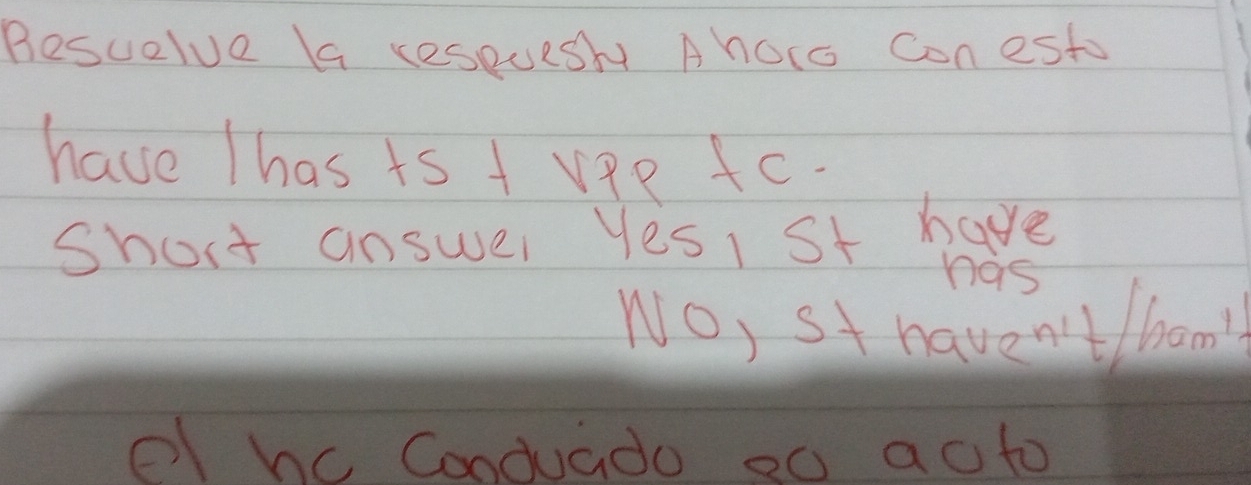 Resuelve la respuesta Ahora con esto
have / has + s + vpp + c.
Short answer Yes, s + have
has
No, s + haven't / hasn't
el ha Conducido ea auto